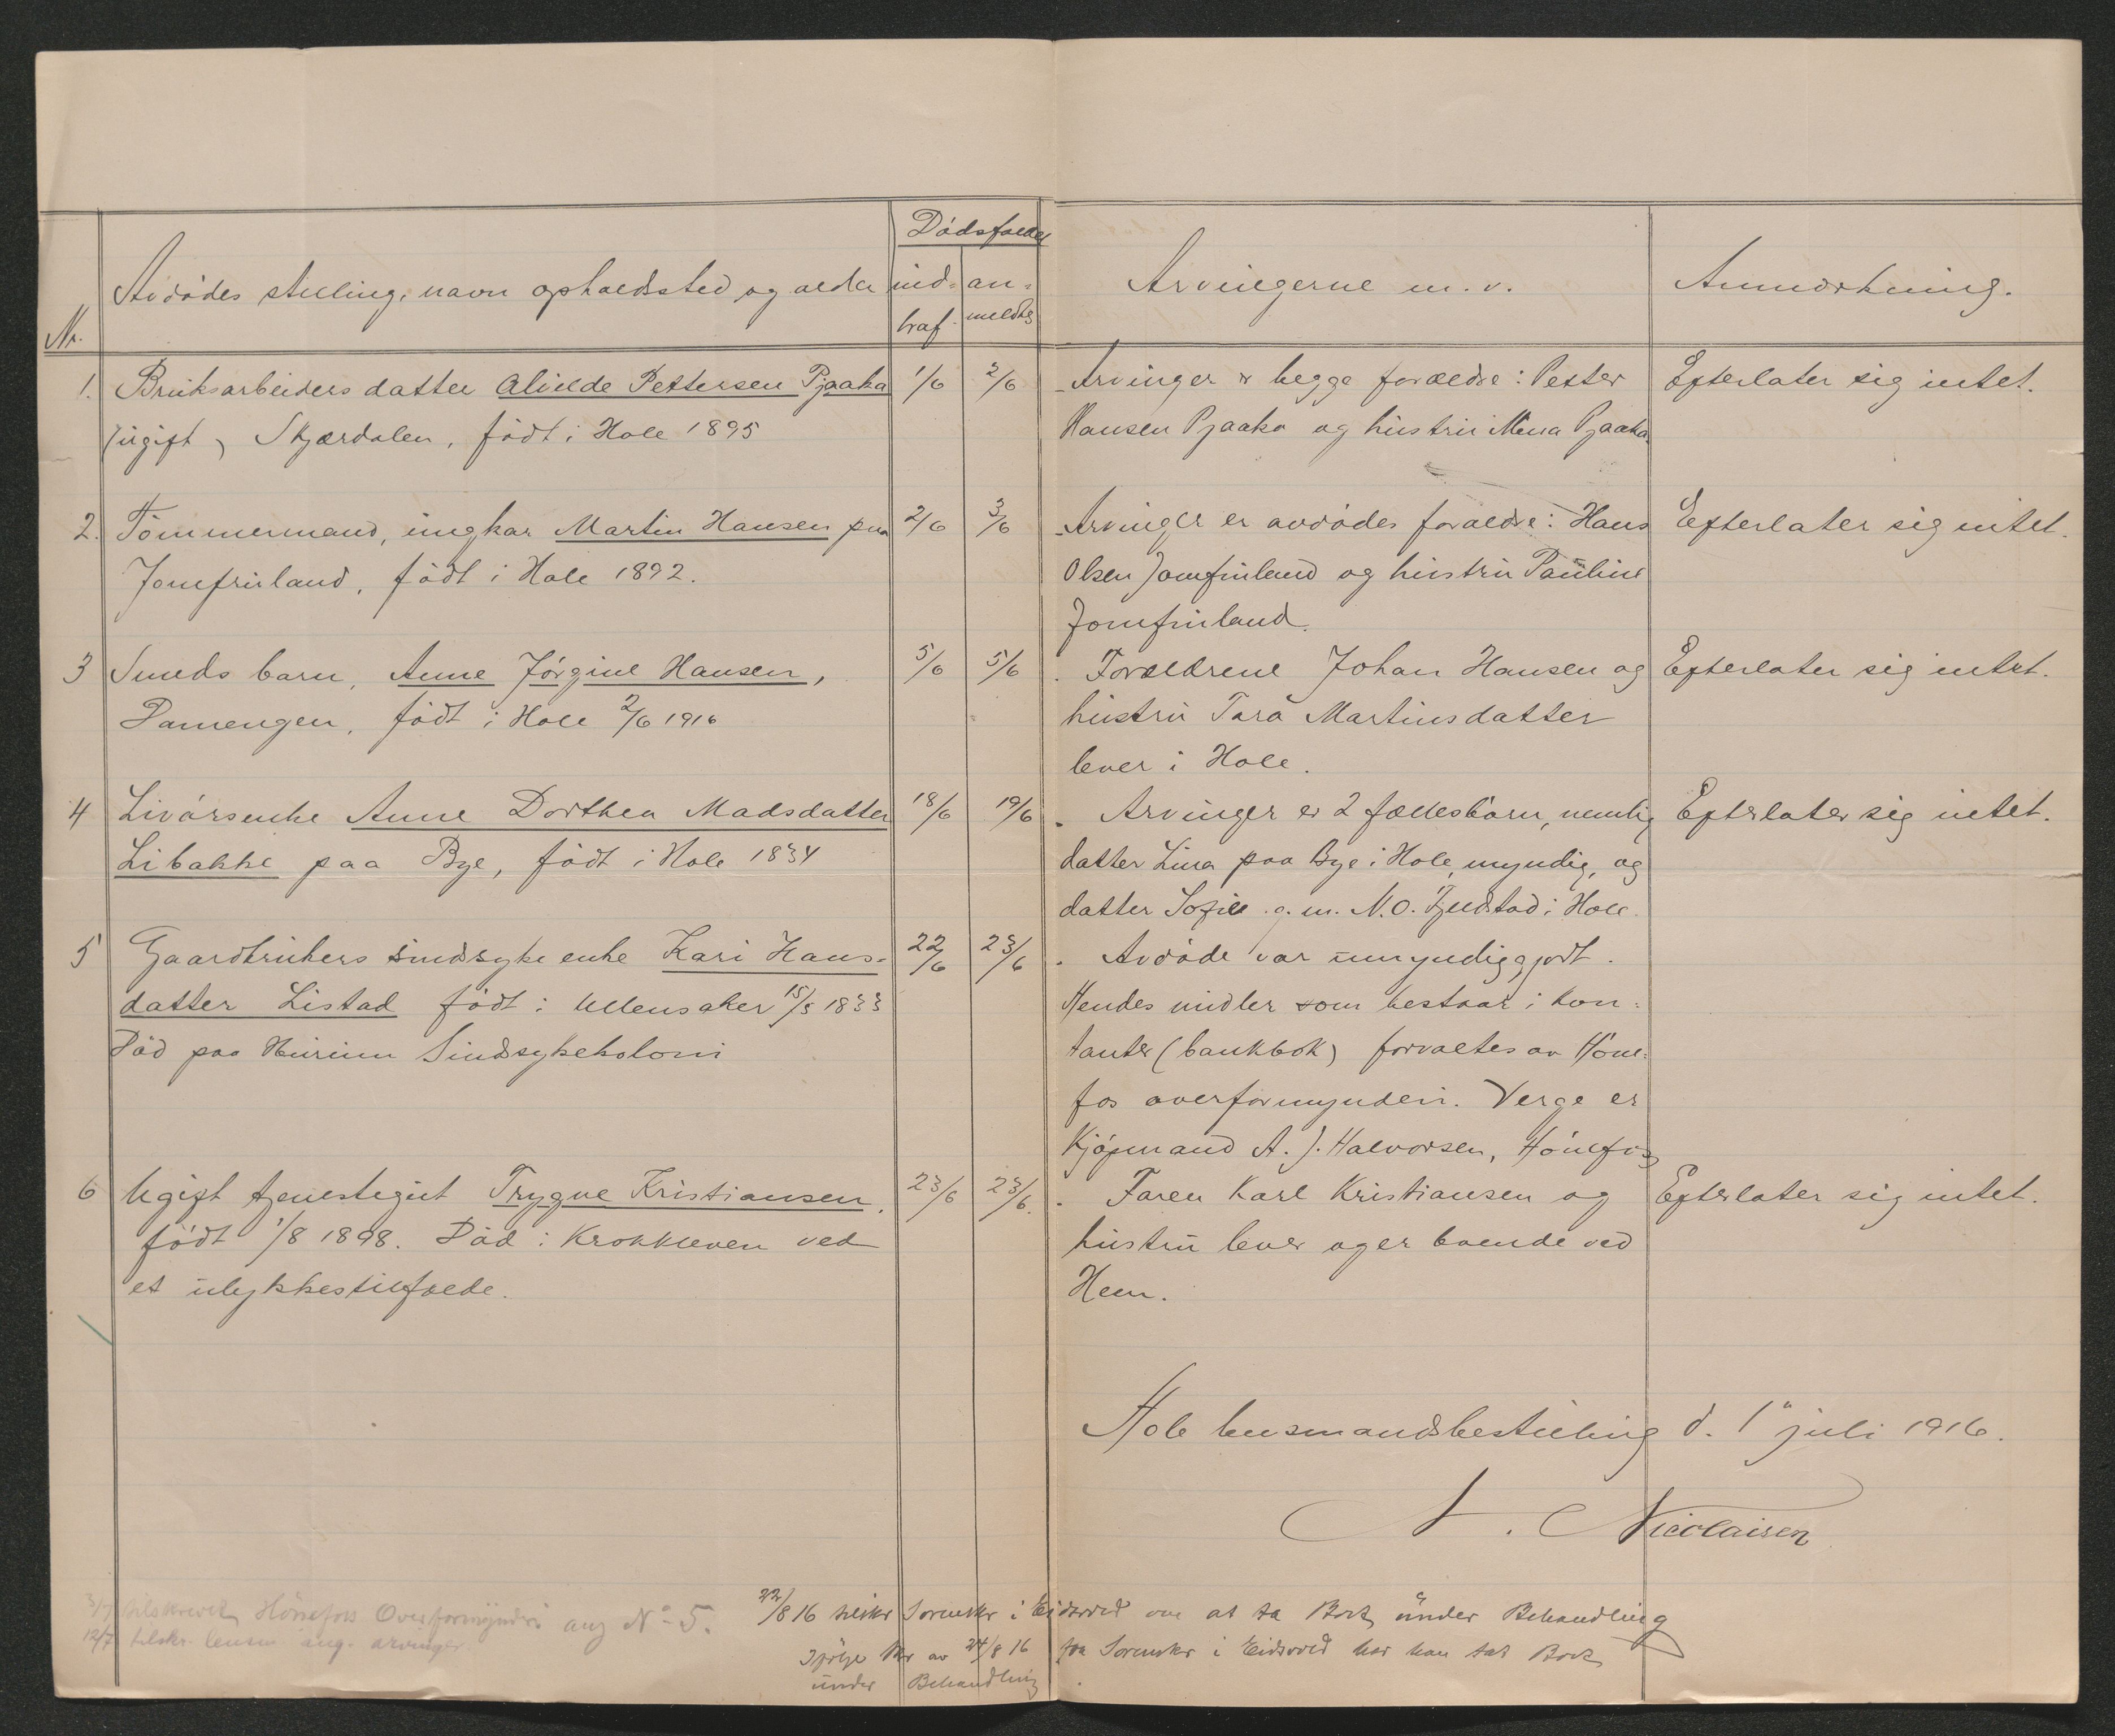 Dödsfaldet
Avdödes stilling, navn opholdssted og alder
ind-
traf
an-
meldtes
Arvingerne m. v.
Anmerkning.
Nr.
1. Bruksarbeiders datter Alvilde Pettersen Pjaaka
(ugift) Skjærdalen, födt i Hole 1895
1/6
2/6
Arvinger er begge forældre: Petter
Hansen Pjaaka og hustru Mina Pjaaka
Efterlater sig intet.
2. Tömmermand, ungkar Martin Hansen paa
Jomfruland, födt i Hole 1892.
2/6
3/6
Arvinger er avdödes foraeldre: Hans
Olsen Jomfruland og hustru Pauline
Jomfruland.
Efterlater sig intet.
3 Smeds barn, Anne Jörgine Hansen,
Damengen, födt i Hole 2/6 1916
5/6
5/6
Forældrene Johan Hansen og
hustru Tora Martinsdatter
lever i Hole.
Efterlater sig intet.
4 Livörsenke Anne Dorthea Madsdatter
Libakke paa Bye, födt i Hole 1834
18/6
19/6
Arvinger er 2 fællesbörn, nemlig
datter Lina paa Bye i Hole, myndig, og
datter Sofie g. m. N. O. Fjeldstad i Hole.
Efterlater sig intet.
5 Gaardbrukers sindsyke enke Kari Hans-
datter Listad födt i Ullensaker 15/5 1833
Död paa Sindsykekoloni
22/6
23/6
Avdöde var umyndiggjort.
Hendes midler som bestaar i kon-
tanter (bankbok) forvaltes av Höne-
fos overformynderi. Verge er
Kjöpmand A. J. Halvorsen, Hönefos
6 Ugift tjenestegut Trygve Kristiansen,
födt 1/8 1898. Död i Krokkleven ved
et ulykkestilfælde.
23/6
23/6.
Faren Karl Kristiansen og
hustru lever og er boende ved
Heen.
Efterlater sig intet.
Hole lensmandsbestilling d. 1 juli 1916.
A. Nicolaisen
3/7 tilskrevet Hönefoss Overformynderi ang No 5.
12/7 tilskr. lensm. ang. arvinger
22/8 16 tilskr Sorenskr i Eidsvold om at ta Boet under Behandling
Ifölge Skr av 24/8 16 fra Sorenskr i Eidsvold har han tat Boet
under Behandling.